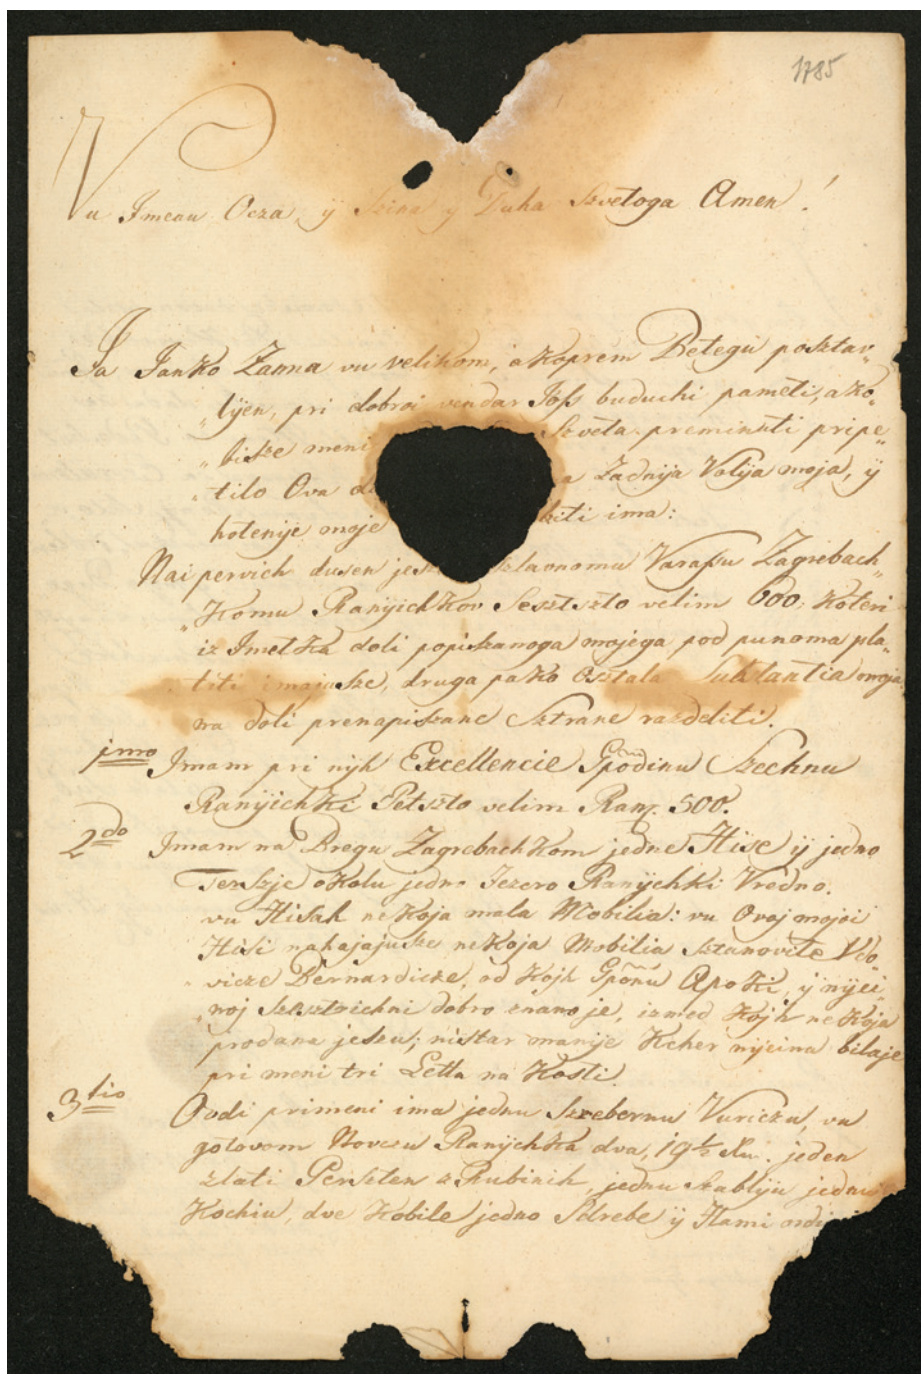 1785
Vu Imenu Ocza, ÿ Szina ÿ Duha Szvetoga Amen!
Ja Janko Zanna vu velikom, akoprem Betegu posztav„
„lÿen, pri dobroi vendar Joss buduchi pameti, ako„
„bisze meni Szveta preminuti pripe„
„tilo Ova a Zadnÿa Volÿa moja, ÿ
hotenÿe moje ima:
Nai pervich dusen jesz Szlavnomu Varassu Zagrebach„
„komu Ranÿichkov Sesztszto velim 600. koteri
iz Imetka doli popiszanoga mojega pod punoma pla„
titi imajusze, druga pako Osztala Substantia moja
na doli prenapiszane Sztrane razdeliti.
1mo Imam pri nÿh Excellencie Gpodinu Szechnu
Ranÿichki Petszto velim Ranÿ. 500.
2do Imam na Bregu Zagrebachkom jedne Hise ÿ jedno
Terszje okolu jedno Jezero Ranÿchki Vredno.
vu Hisah nekoja mala Mobilia: vu Ovoj mojoi
Hisi nahajajusze nekoja Mobilia sztanovite Vdo„
vicze Bernardicze, od kojh Gponu Apoki, ÿ nÿei
„noj Szesztrichni dobro znano je, izmed kojh nekoja
prodana jeszu; nistar manÿe Kcher nÿeina bilaje
pri meni tri Letta na Kosti.
3tio Ovdi primeni ima jednu Szrebernu Vuriczu, vu
gotovom Novczu Ranÿchka dva, 19½ Xr. jeden
zlati Perszten z Rubinih, jednu Szablÿu jednu
Kochiu, dve Kobile jedno Sdrebe ÿ Hami